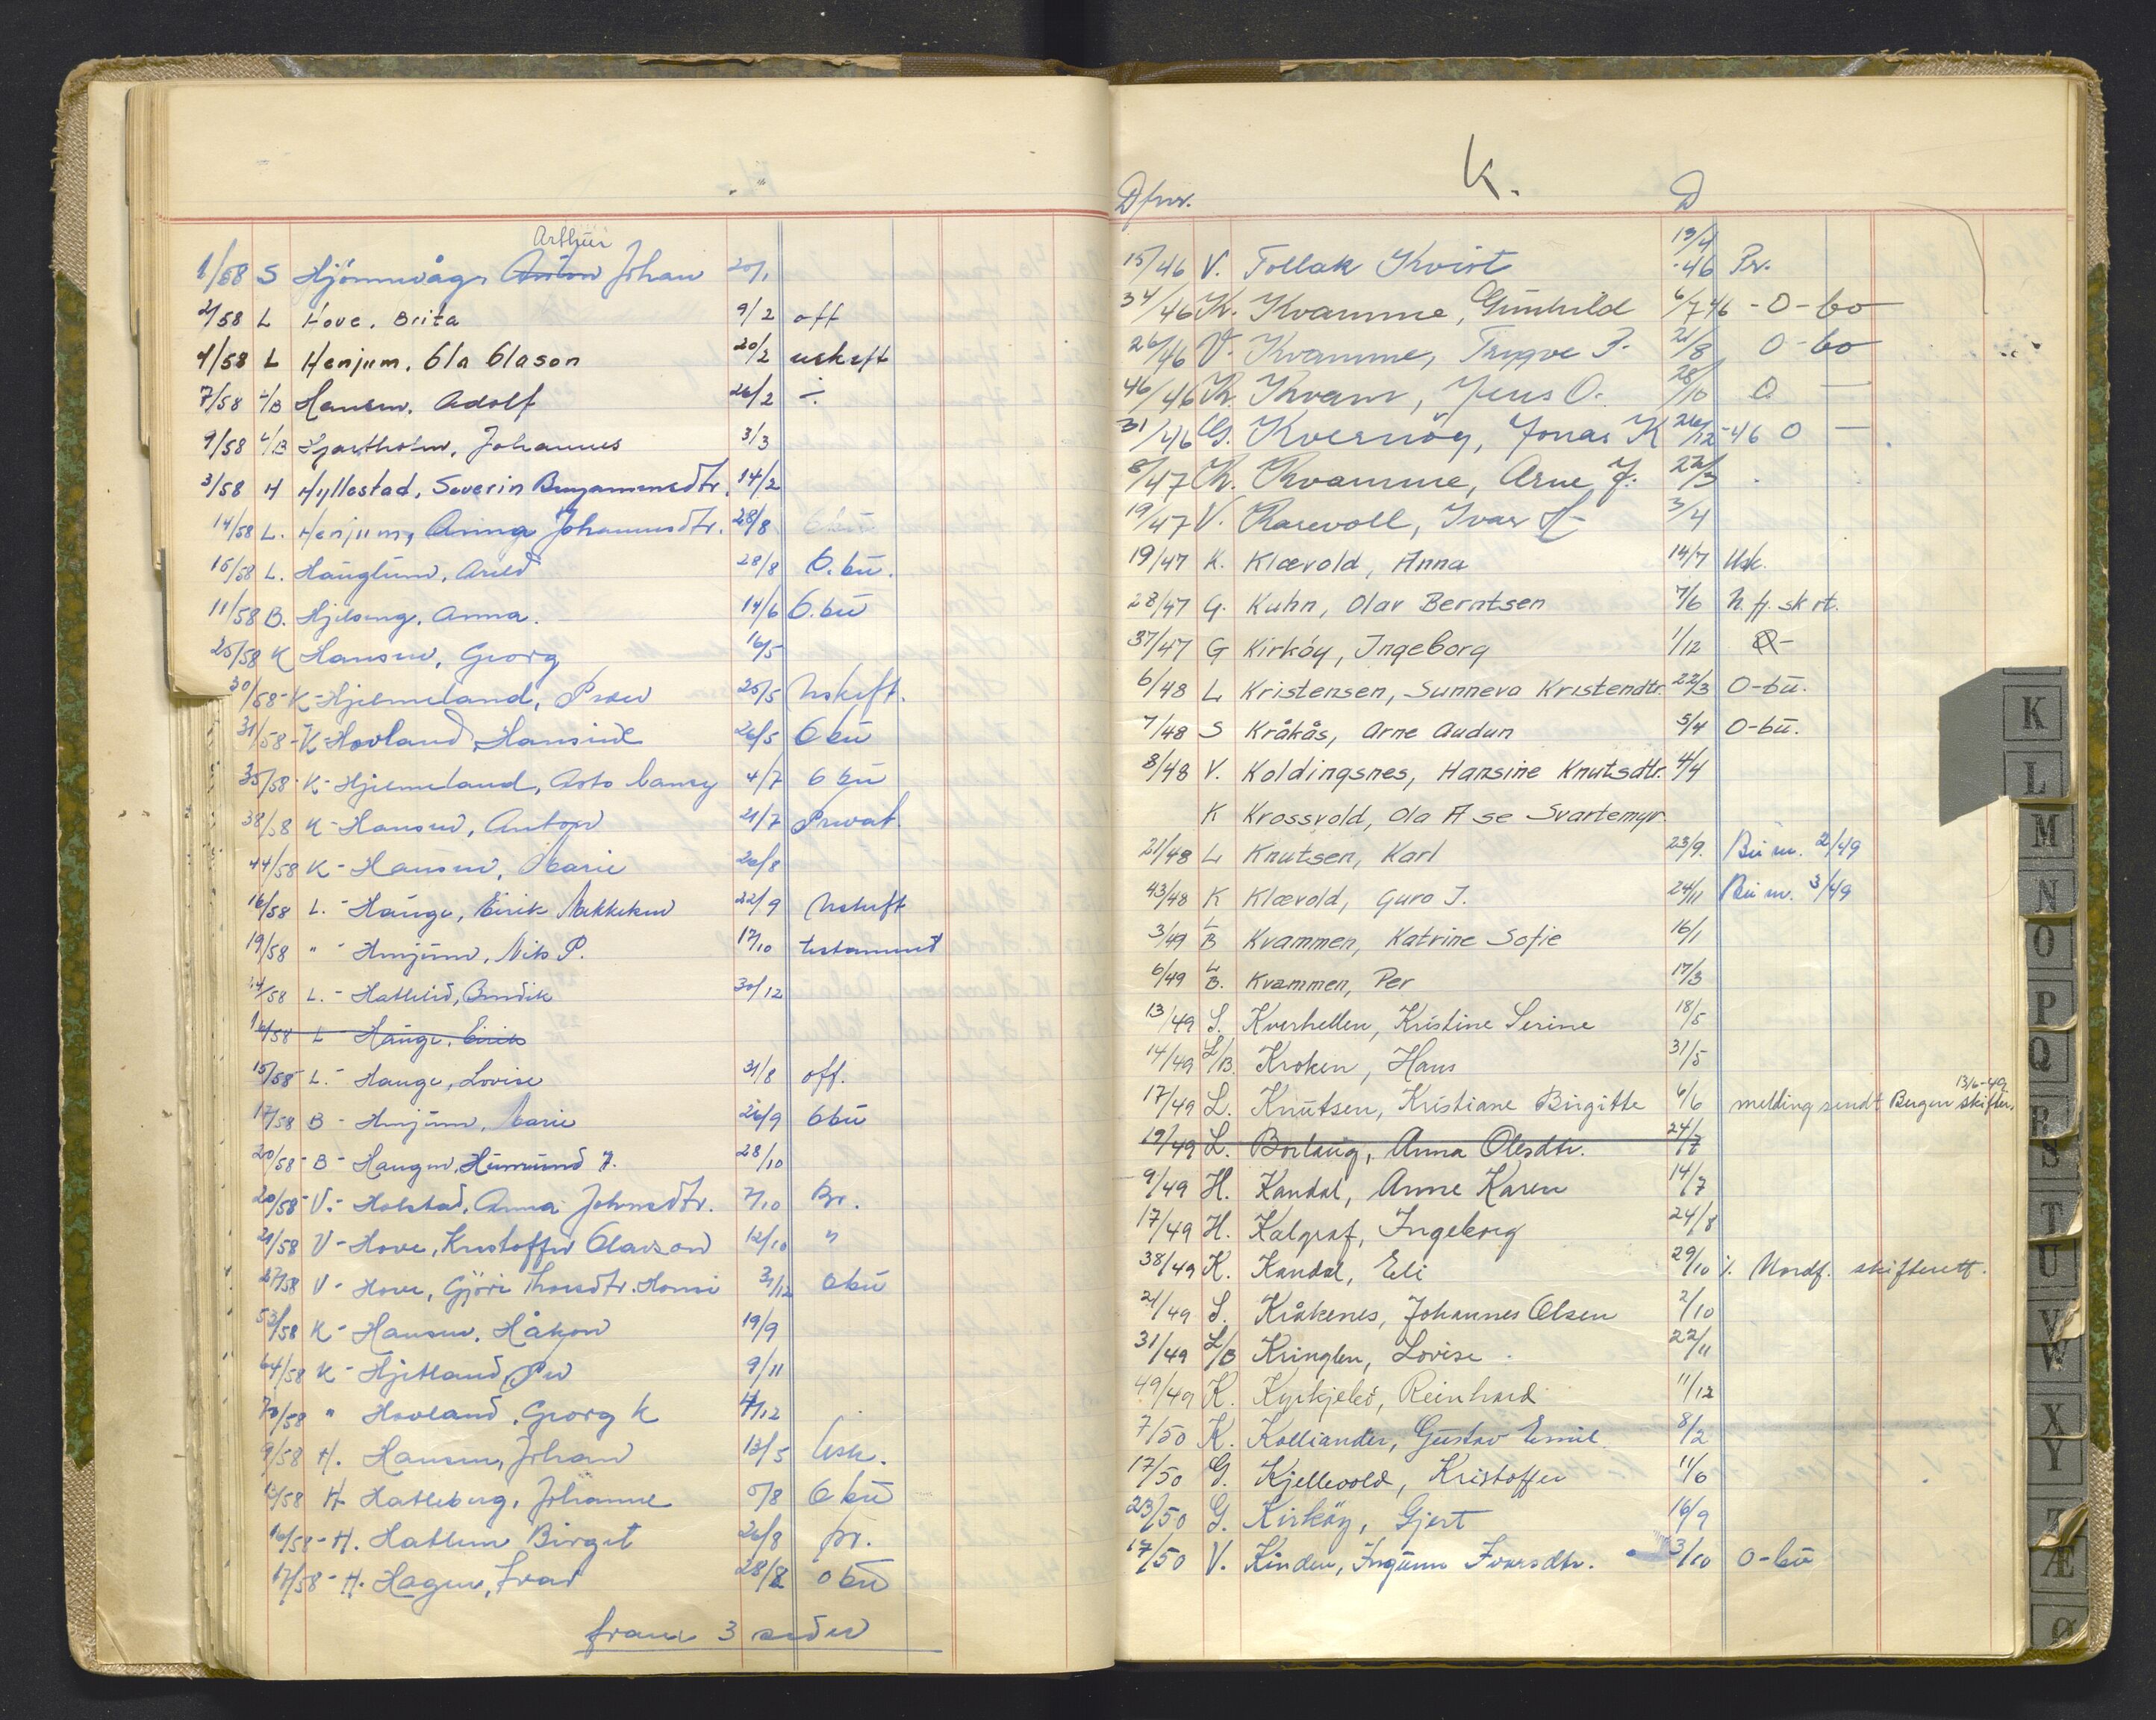 Arthur
1/58 S Hjønnevåg, Anton Johan 20/1
2/58 L Hove, Brita 9/2 off
4/58 L Henjum, Ola Olason 20/2 uskift
7/58 L/B Hansen, Adolf 26/2 -:-
9/58 L/B Hjartholm, Johannes 3/3
3/58 H Hyllestad, Severin Benjaminsdtr. 14/2
14/58 L. Henjum, Anna Johannesdtr. 28/8
15/58 L. Hauglum, Arild 28/8 O.bu.
11/58 B. Hjelseng, Anna. 14/6 O.bu
25/58 K Hansen, Georg 16/5
30/58 - K - Hjelmeland, Peder 25/5 Uskift.
31/58 - K - Hovland, Hansine 26/5 O bu
35/58 - K - Hjelmeland, Asta Canny 4/7 O bu
38/58 K - Hansen, Anton 21/7 Privat.
44/58 K - Hansen, Marie 26/8
16/58 L. - Hauge, Eirik 22/9 Uskift
19/58 " - Henjum, Nils P. 17/10 testament
24/58 L. - Hatlelid, Bendik 30/12
16/58 L - Hauge, Eirik
15/58 - L. - Hauge, Lovise 31/8 off.
17/58 B - Henjum, Marie 26/9 O bu
20/58 - B - Haugen, Humund J. 28/10
20/58 - V. - Holstad, Anna Johnsdtr. 7/10 Pr.
21/58 V - Hove, Kristoffer Olavson 12/10 "
27/58 V - Hove, Gjöri Thorsdtr. Homi 31/12 O bu
53/58 K - Hansen, Håkon 19/9
64/58 K - Hjetland, Per 9/11
70/58 " Hovland, Georg K 4/12
9/58 H. Hansen, Johan 13/5 Usk.
12/58 H Hatleberg, Johanne 5/8 O bu
16/58 - H. Hatlem Birgit 26/8 pr.
17/58 - H. Hagen, Ivar 28/8 O bu
fram 3 sider
K.
Dfnr. D
15/46 V. Tollak Kvist 19/4 -46 Pr.
34/46 K. Kvamme, Gunhild 6/7 46 - O - bo
26/46 V. Kvamme, Trygve J. 21/8 O - bo
46/46 K. Kvam, Jens O. 28/10 O —
31/46 G. Kvernöy, Jonas K 26/12 - 46 O —
8/47 K. Kvamme, Arne J. 22/3
19/47 V. Karevoll, Ivar 3/4
19/47 K. Klævold, Anna 14/7 Usk.
28/47 G. Kuhn, Olav Berntsen 7/6 N. fj. sk rt.
37/47 G Kirköy, Ingeborg 1/12 O -
6/48 L Kristensen, Sunneva Kristendtr. 22/3 O-bu.
7/48 S Kråkås, Arne Audun 5/4 O-bu.
8/48 V. Koldingsnes, Hansine Knutsdtr. 4/4
K Krossvold, Ola A se Svartemyr.
21/48 L Knutsen, Karl 23/9. Bu nr. 2/49
43/48 K Klævold, Guro J. 24/11 Bu nr. 3/49
3/49 L B Kvammen, Katrine Sofie 16/1
6/49 L B. Kvammen, Per 17/3
13/49 S. Kverhellen, Kristine Serine 18/5
14/49 L/B. Kroken, Hans 31/5
17/49 L. Knutsen, Kristiane Birgitte 6/6 melding sendt Bergen skifter. 13/6-49
19/49 L. Borlaug, Anna Olesdtr. 24/7
9/49 H. Kandal, Anne Karen 14/7
17/49 H. Kalgraf, Ingeborg 24/8
38/49 K. Kandal, Eli 29/10 ./. Nordf. skifterett.
21/49 S. Kråkenes, Johannes Olsen 2/10
31/49 L/B Kringlen, Lovise 22/11
49/49 K. Kyrkjebö, Reinhard 11/12
7/50 K. Kolliander, Gustav Emil 8/2
17/50 G. Kjellevold, Kristoffer 11/6
23/50 G. Kirköy, Gjert 16/9
17/50 V. Kinden, Ingunn Ivarsdtr. 3/10 O-bu
K
L
M
N
O
P
Q
R
S
T
U
V
W
X
Y
Z
Æ
Ø